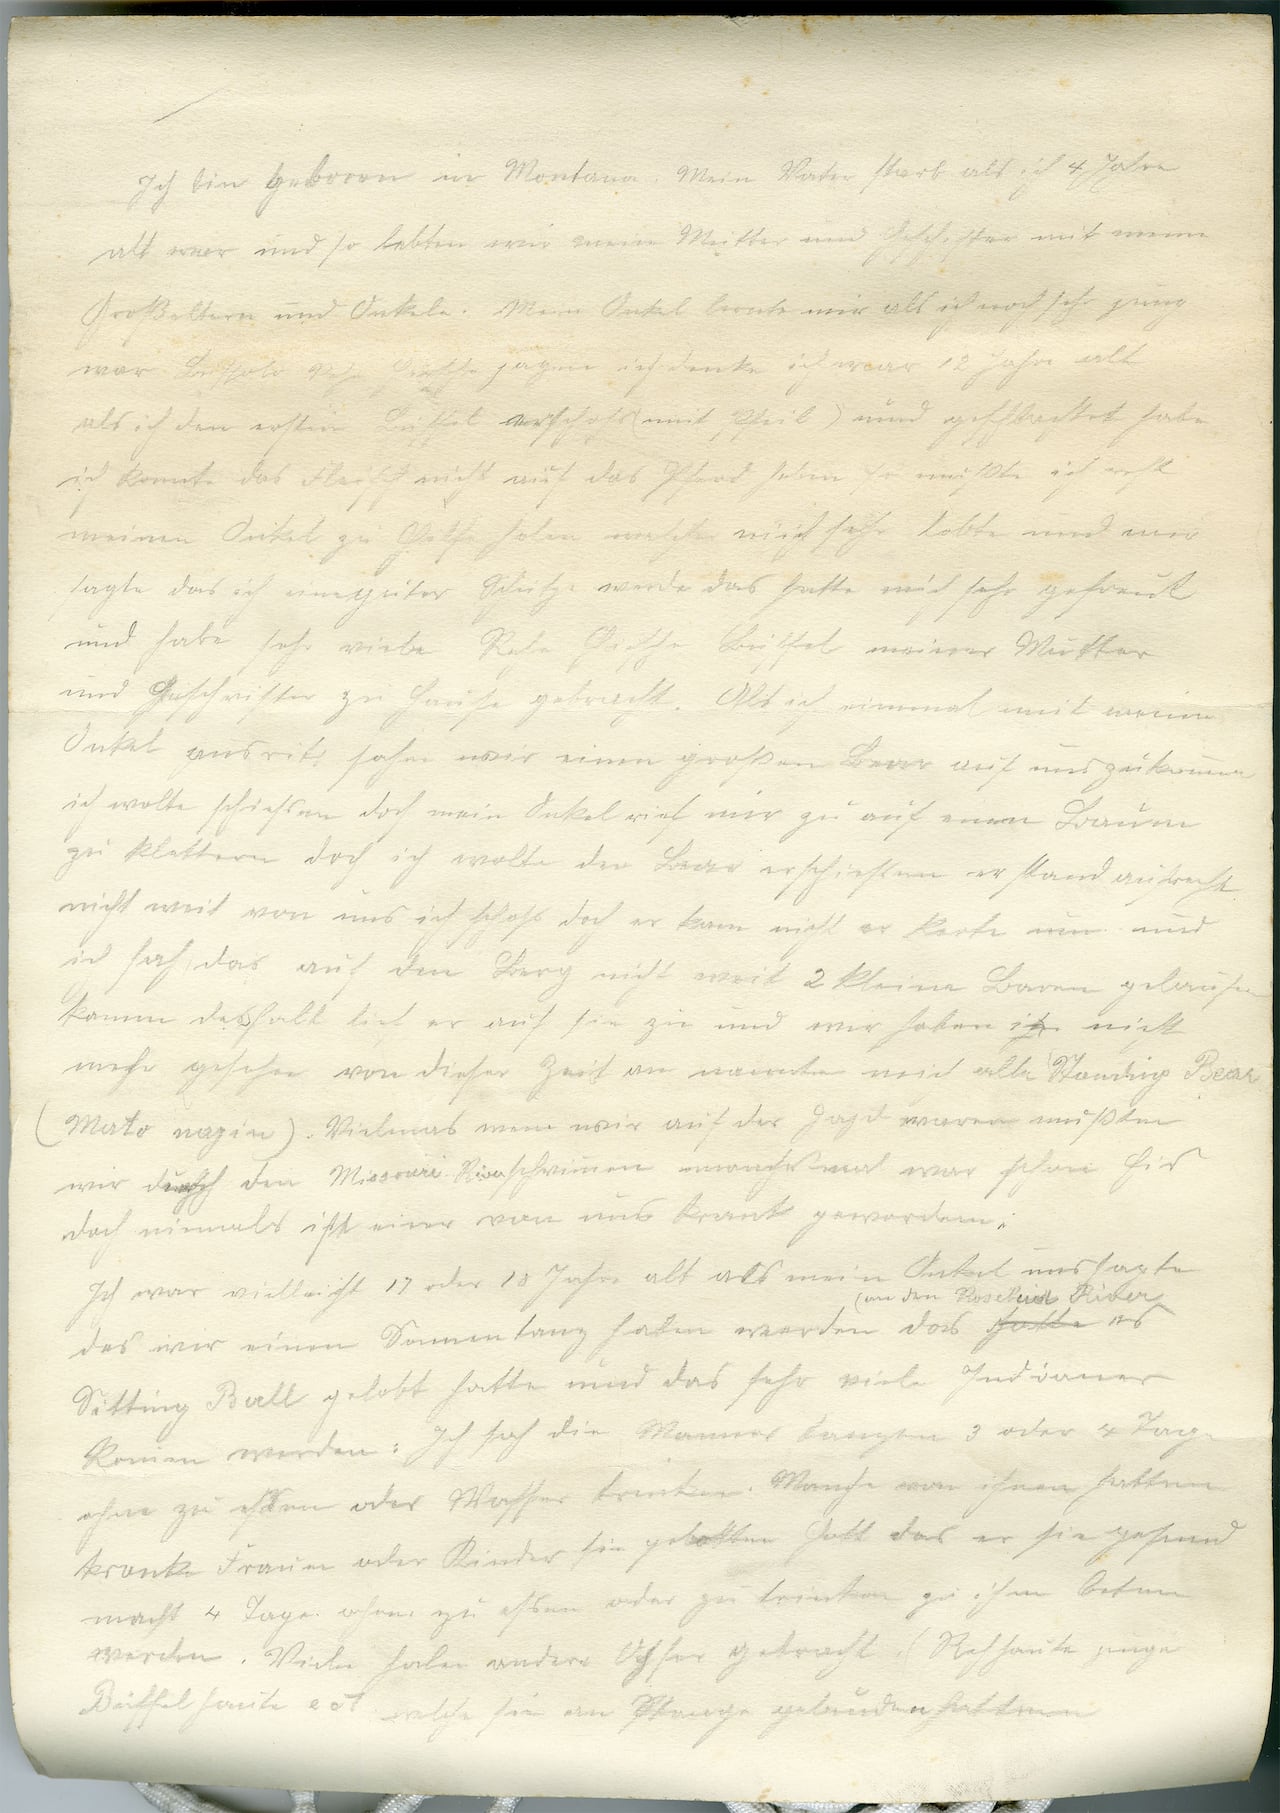 Ich bin geboren in Montana. Mein Vater starb als ich 4 Jahre
alt war und so lebten wir meine Mutter und Geschister mit meine
Großeltern und Onkeln. Mein Onkel lernte mir als ich noch sehr jung
war Buffalo Rehe Hirsche jagen ich denke ich war 12 Jahre alt
als ich den ersten Büffel erschoss (mit Pfeil) und geschlachtet habe
ich konnte das Fleisch nicht auf das Pferd heben so mußte ich erst
meinen Onkel zu Hilfe holen welcher mich sehr lobte und mir
sagte das ich eine guter Schütze werde das hatte mich sehr gefreut
und habe sehr viele Rehe Hirsche Büffel meiner Mutter
und Geschwister zu Hause gebracht. Als ich einmal mit meine
Onkel ausritt sahen wir einen großen Bear auf uns zukommen
ich wolte schiessen doch mein Onkel rief mir zu auf einen Baum
zu klettern doch ich wolte den Bear erschiessen er stand aufrecht
nicht weit von uns ich schoss doch er kam nicht er kerte um und
ich sah das auf den Berg nicht weit 2 kleine Baren gelaufen
kamen deshalb lief er auf sie zu und wir haben ihn nicht
mehr gesehen von dieser Zeit an nannten mich alle Standing Bear
(Mato najin). Vielmas wenn wir auf der Jagd waren mußten
wir durch den Missouri River schwimen manchesmal war schon Eis
doch niemals ist einer von uns krank geworden.
Ich war vielleicht 17 oder 18 Jahre alt als mein Onkel uns sagte
(an den Rosebud River
das wir einen Sonnentanz haben werden das hatte es
Sitting Bull gelobt hatte und das sehr viele Indianer
komen werden: Ich sah die Manner tanzen 3 oder 4 Tage
ohne zu essen oder Wasser trinken. Manche von ihnen hatten
kranke Frauen oder Kinder sie gebetten Gott das er sie gesund
macht 4 Tage ohne zu essen oder zu trinken zu ihm beten
werden. Viele haben andere Opfer gebracht (Rehhaute junge
Büffelhaute ect welche sie an Stange gebunden hatten